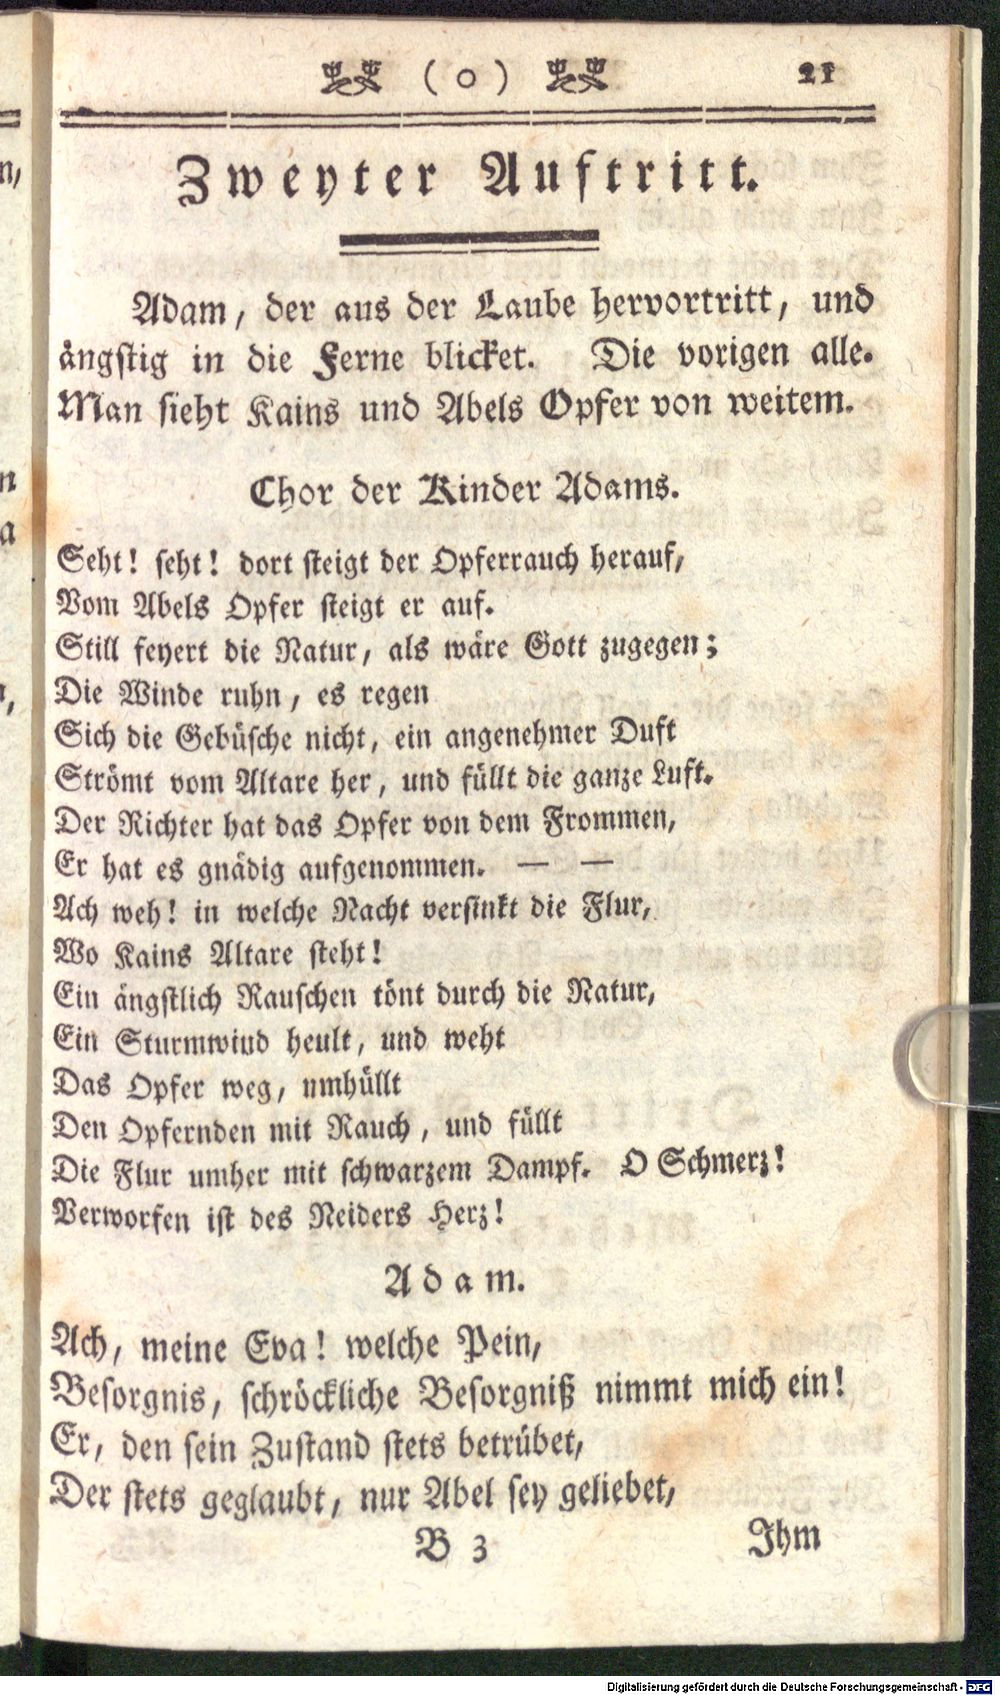 ( o ) 21
Zweyter Auftritt.
Adam, der aus der Laube hervortritt, und
ängstig in die Ferne blicket. Die vorigen alle.
Man sieht Kains und Abels Opfer von weitem.
Chor der Kinder Adams.
Seht! seht! dort steigt der Opferrauch herauf,
Vom Abels Opfer steigt er auf.
Still feyert die Natur, als wäre Gott zugegen;
Die Winde ruhn, es regen
Sich die Gebüsche nicht, ein angenehmer Duft
Strömt vom Altare her, und füllt die ganze Luft.
Der Richter hat das Opfer von dem Frommen,
Er hat es gnädig aufgenommen. — —
Ach weh! in welche Nacht versinkt die Flur,
Wo Kains Altare steht!
Ein ängstlich Rauschen tönt durch die Natur,
Ein Sturmwind heult, und weht
Das Opfer weg, umhüllt
Den Opfernden mit Rauch, und füllt
Die Flur umher mit schwarzem Dampf. O Schmerz!
Verworfen ist des Neiders Herz!
Adam.
Ach, meine Eva! welche Pein,
Besorgnis, schröckliche Besorgniß nimmt mich ein!
Er, den sein Zustand stets betrübet,
Der stets geglaubt, nur Abel sey geliebet,
B 3 Ihm
Digitalisierung gefördert durch die Deutsche Forschungsgemeinschaft - DFG